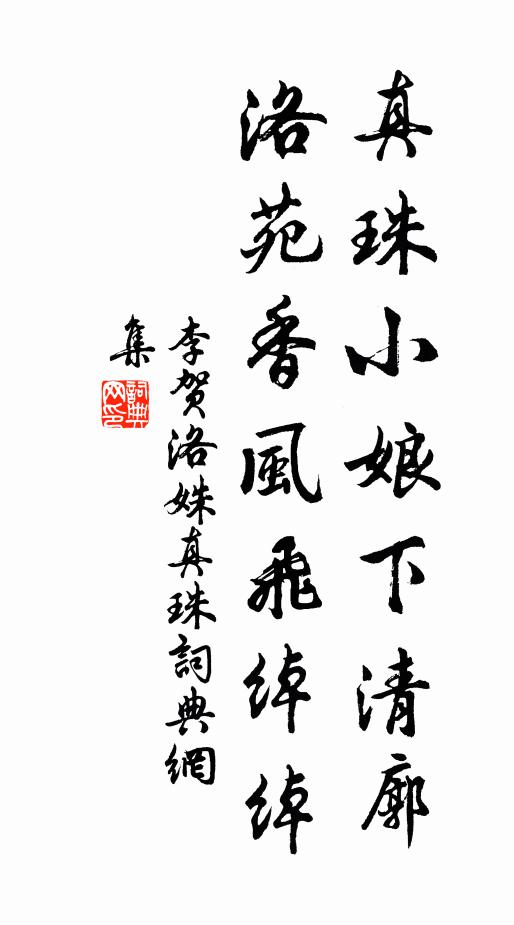 真珠小娘下清廓
洛苑香風飛綽綽
李賀洛姝真珠詞典網
集
詞典網印